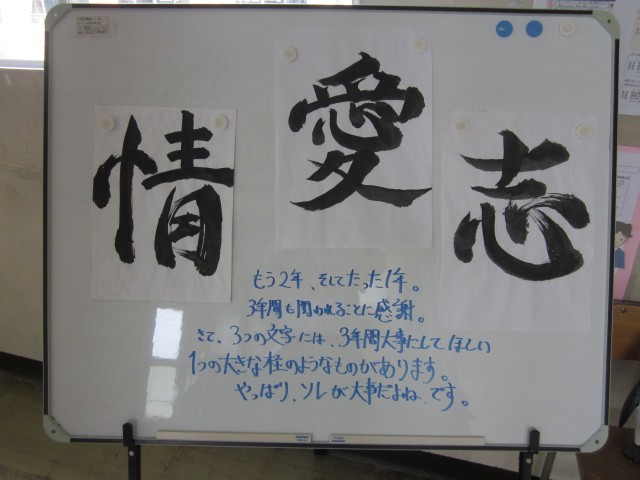 情
愛
志
もう2年、そしてたった1年。
3年間も関われることに感謝。
さて、3つの文字には、3年間大事にしてほしい
1つの大きな柱のようなものがあります。
やっぱり、ソレが大事だよね、です。